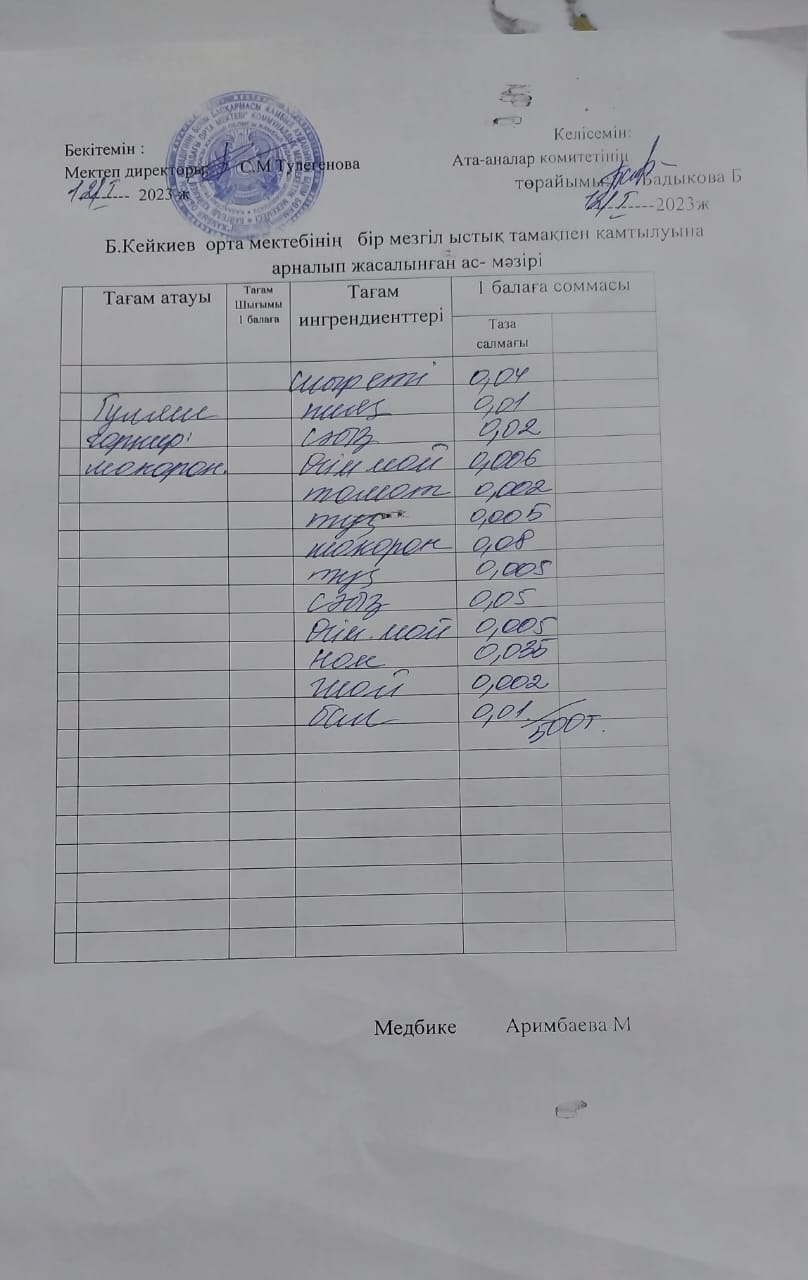 Бекітемін :
Мектеп директоры: С.М Тулегенова
12/I 2023 ж
Келісемін:
Ата-аналар комитетінің
төрайымы Бадыкова Б
12/I 2023ж
Б.Кейкиев орта мектебінің бір мезгіл ыстық тамақпен қамтылуына
арналып жасалынған ас- мәзірі
Тағам атауы Тағам Шығымы 1 балаға Тағам ингрендиенттері 1 балаға соммасы
Таза салмағы
сиыр еті 0,04
Гуляш пияз 0,01
гарнир: сәбіз 0,02
макорон. өсім май 0,006
томат 0,002
тұз 0,005
макорон 0,08
тұз 0,005
сәбіз 0,05
өсім. май 0,005
нан 0,035
шай 0,002
бал 0,01 / 500т.
Медбике Аримбаева М